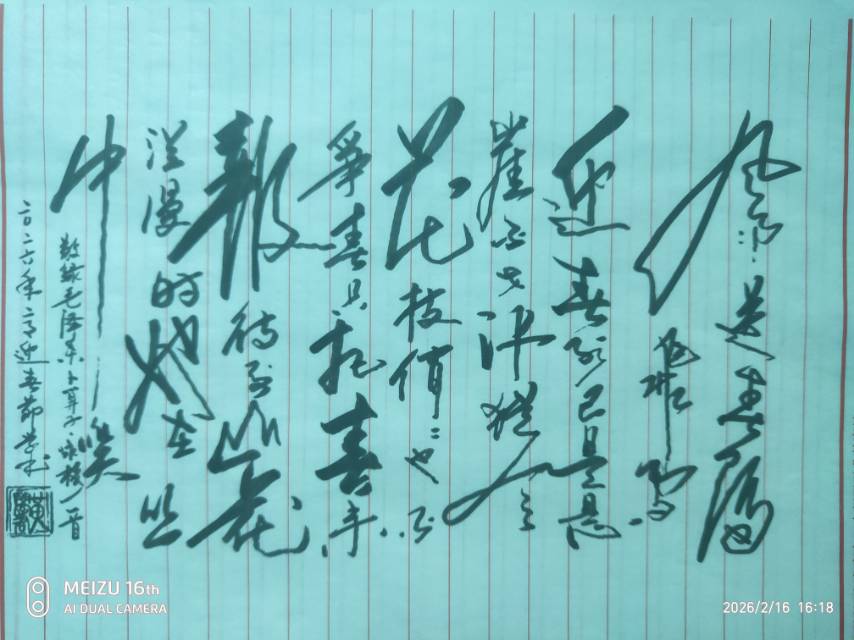 风雨送春归
飞雪
迎春到已是悬
崖百丈冰犹有
花枝俏〻也不
爭春只把春来
報待到山花
烂漫时她在丛
中笑
敬录毛泽东卜算子·咏梅一首
二〇二六年二月迎春节
MEIZU 16th
AI DUAL CAMERA
2026/2/16 16:18